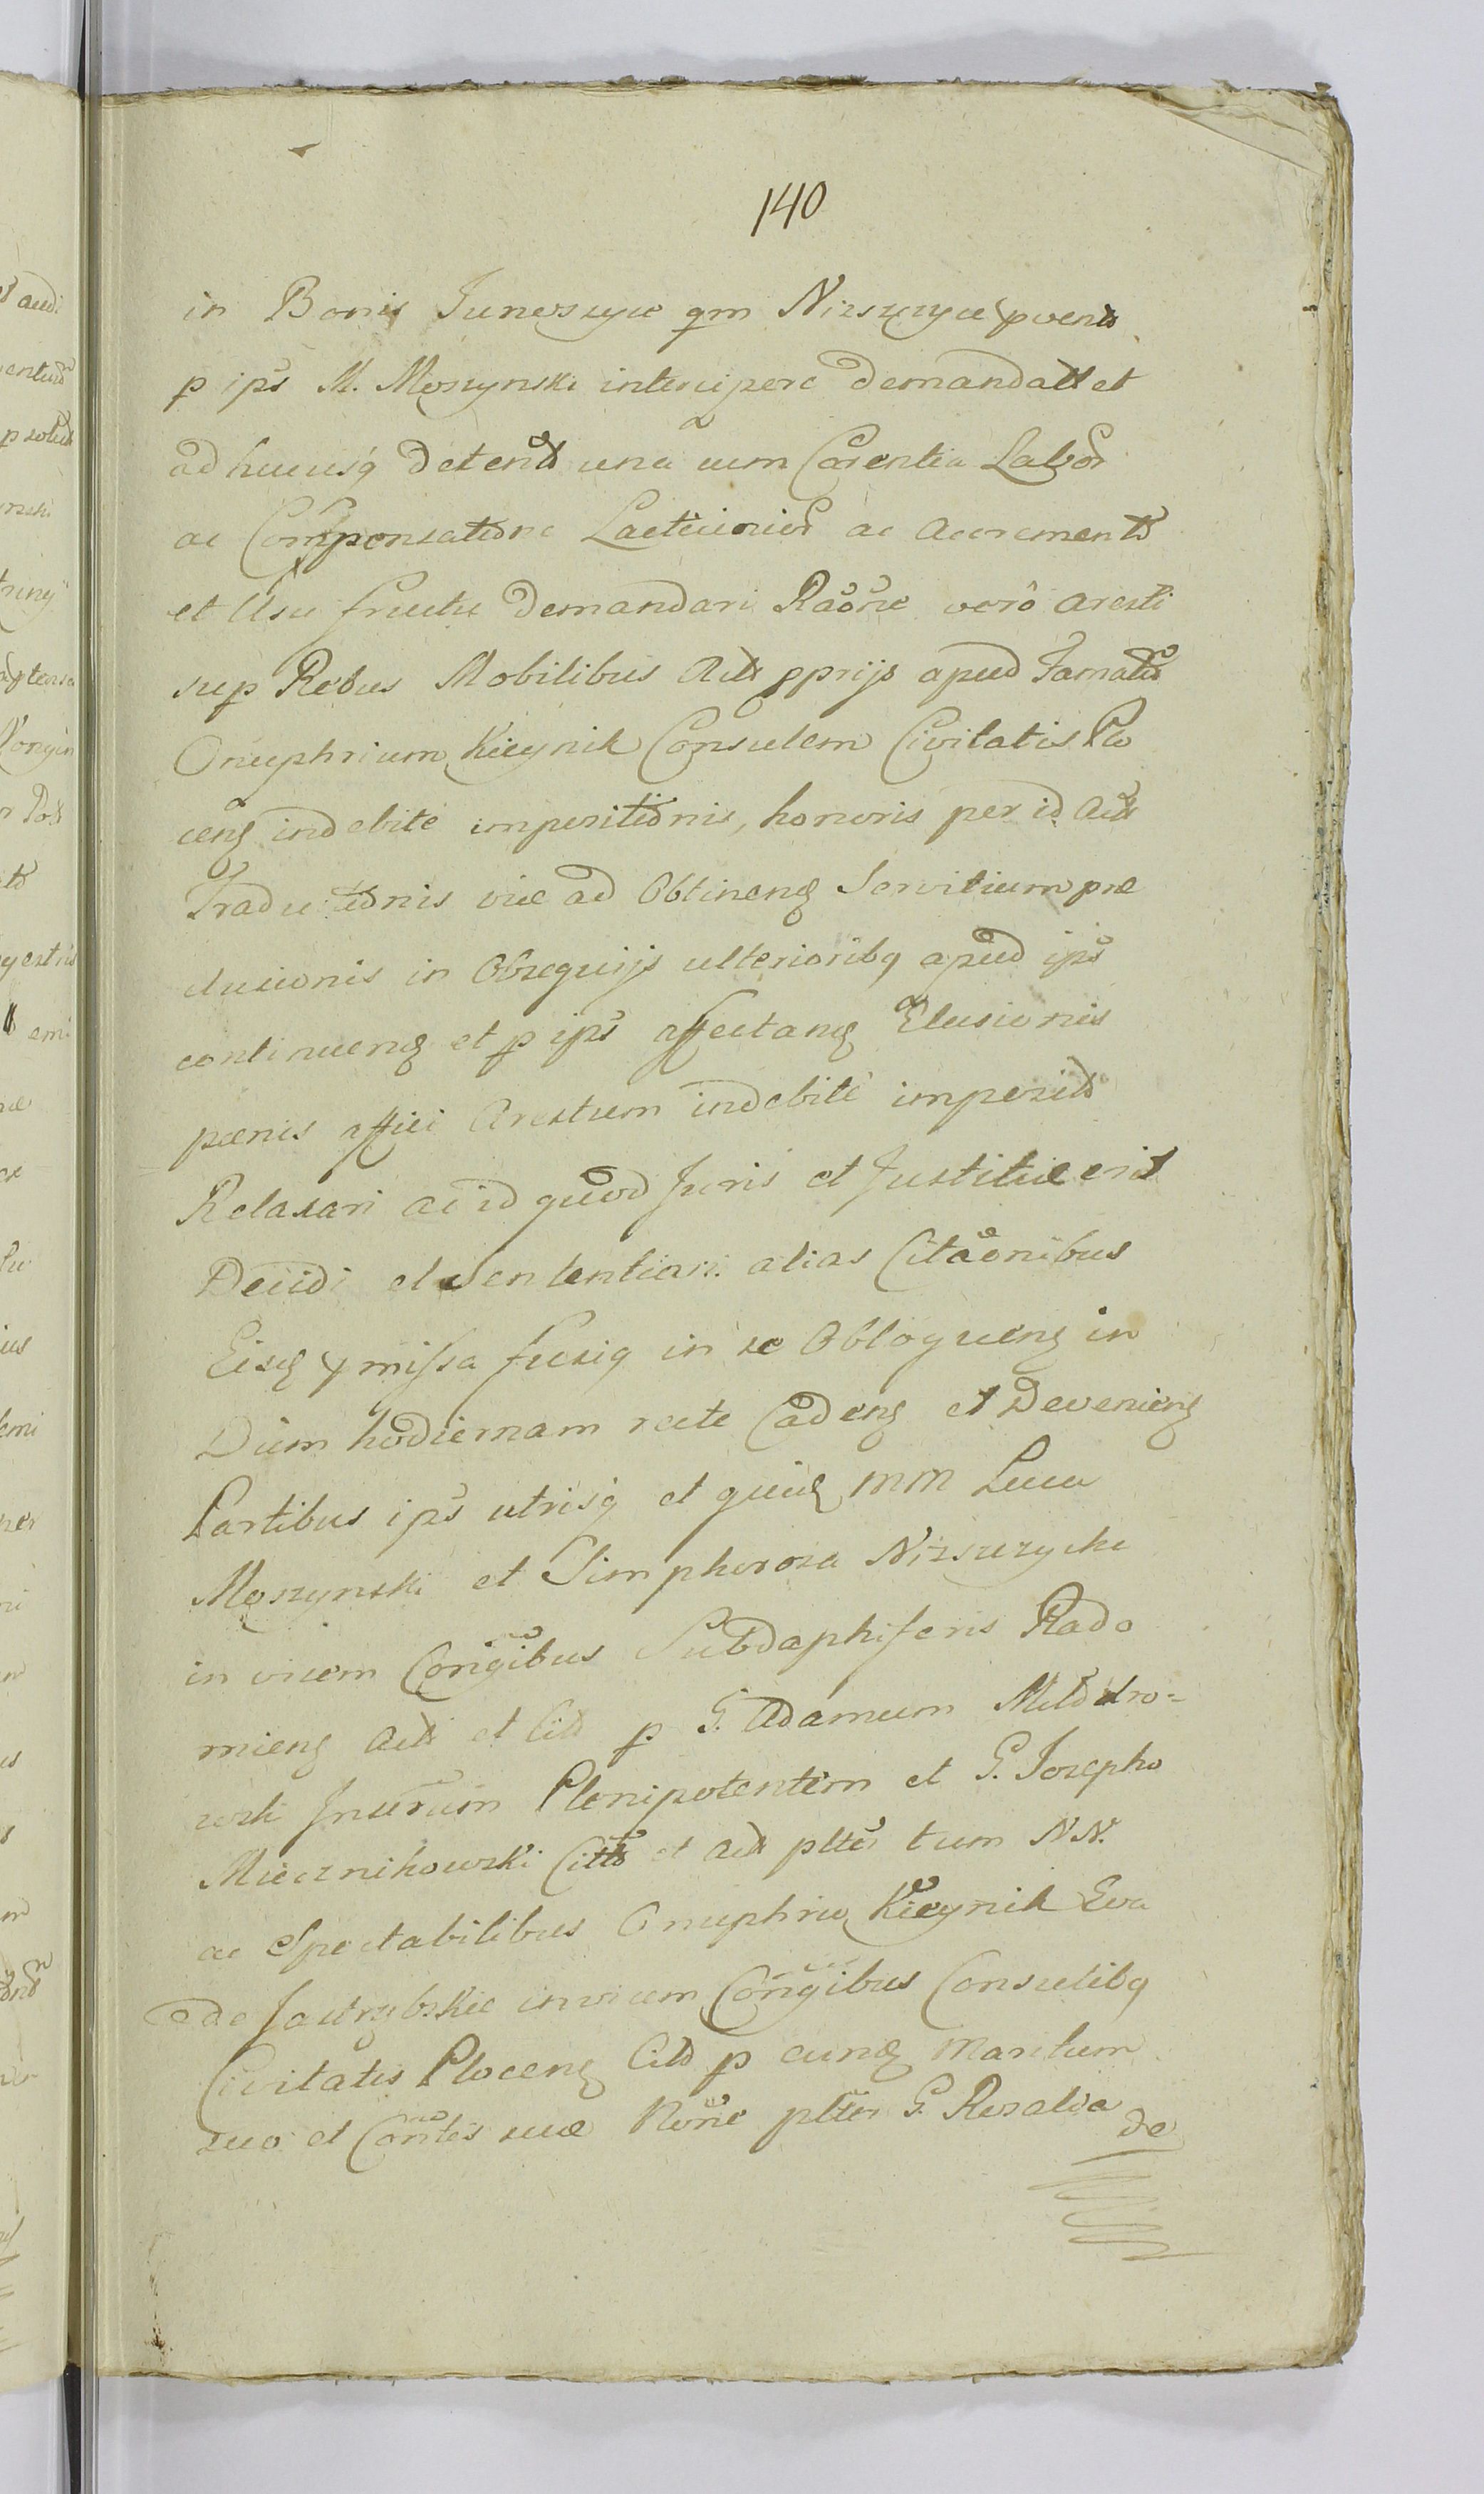 140
in Bonis Juneszyce qm Niszczyce pvents
p ips M. Moszynski intercipere demandatt et
ad hucusq detent una cum Carentia Labor
ac Compensatione Lacticinior ac accrementt
et Usu fructu demandari Raone vero aresti
sup Rebus Mobilibus Act pprijs apud Famat
Onuphrium Kicynik Consulem Civitatis Plo
cens indebite impositionis, honoris per id Act
Traductionis viae ad Obtinens Servitium prae
clusionis in Obsequijs ulterioribq apud ips
continuens et p ips affectans Elusionis
paenis affici Arestum indebite imposit
Relaxari ac id quod Juris et Justitiae erit
Decidi et Sententiari alias Citaonibus
Eisd pmissa fusiq in se Obloquens in
Diem hodiernam recte Cadens et Deveniens
Partibus ips utrisq et quid MM Luca
Moszynski et Simphorosa Niszczycka
in vicem Conjgibus Subdaphiferis Rado
miens Act et Cit p G. Adamum
Plenipotentem et G. Josepho
Miecznikowski Citt et Act plter tum NN.
ac Spectabilibus Onuphrio Kicynik Eva
de invicem Conjgibus Consulibq
Civitatis Plocens Citt p eund Maritum
suo et Contes suae Noie plter G. Rosalia
de